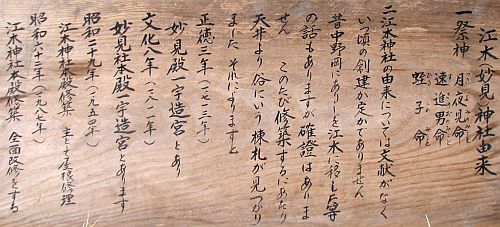 江木(妙見)神社由来
一祭神 月夜見命
速進男命
蛭子命
二江木神社の由来については文献がなく
いつ頃の創建か定かでありません
昔中野岡にありしを江木に移した等
の話もありますが確證はありま
せん このたび修築するにあたり
天井より俗にいう棟札が見つかり
ました それによりますと
正徳三年(一七一三年)
妙見殿一宇造宮とあり
文化八年(一八一一年)
妙見社本殿一宇造宮とあります
昭和二十九年(一九五四年)
江木神社本殿修築 主とし屋根修理
昭和六十二年(一九八七年)
江木神社本殿修築 全面改修をする